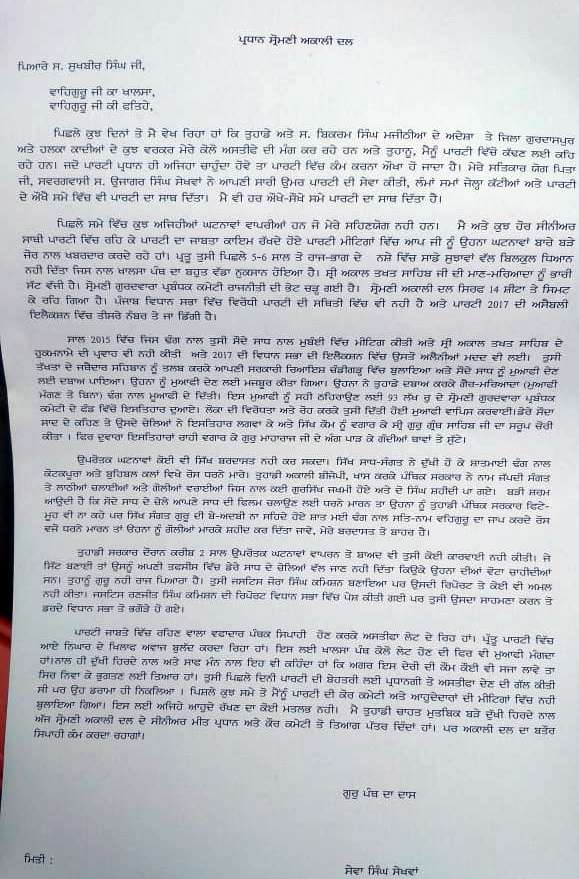 ਪ੍ਰਧਾਨ ਸ਼੍ਰੋਮਣੀ ਅਕਾਲੀ ਦਲ
ਪਿਆਰੇ ਸ. ਸੁਖਬੀਰ ਸਿੰਘ ਜੀ,
ਵਾਹਿਗੁਰੂ ਜੀ ਕਾ ਖਾਲਸਾ,
ਵਾਹਿਗੁਰੂ ਜੀ ਕੀ ਫਤਿਹੇ,
ਪਿਛਲੇ ਕੁਝ ਦਿਨਾਂ ਤੋ ਮੈ ਵੇਖ ਰਿਹਾ ਹਾਂ ਕਿ ਤੁਹਾਡੇ ਅਤੇ ਸ. ਬਿਕਰਮ ਸਿੰਘ ਮਜੀਠੀਆ ਦੇ ਅਦੇਸ਼ਾ ਤੇ ਜਿਲਾ ਗੁਰਦਾਸਪੁਰ
ਅਤੇ ਹਲਕਾ ਕਾਦੀਆਂ ਦੇ ਕੁਝ ਵਰਕਰ ਮੇਰੇ ਕੋਲੋ ਅਸਤੀਫੇ ਦੀ ਮੰਗ ਕਰ ਰਹੇ ਹਨ ਅਤੇ ਤੁਹਾਨੂ, ਮੈਨੂੰ ਪਾਰਟੀ ਵਿੱਚੋ ਕੱਢਣ ਲਈ ਕਹਿ
ਰਹੇ ਹਨ। ਜਦੋ ਪਾਰਟੀ ਪ੍ਰਧਾਨ ਹੀ ਅਜਿਹਾ ਚਾਹੁੰਦਾ ਹੋਵੇ ਤਾ ਪਾਰਟੀ ਵਿੱਚ ਕੰਮ ਕਰਨਾ ਔਖਾ ਹੋ ਜਾਦਾ ਹੈ। ਮੇਰੇ ਸਤਿਕਾਰ ਯੋਗ ਪਿਤਾ
ਜੀ, ਸਵਰਗਵਾਸੀ ਸ. ਉਜਾਗਰ ਸਿੰਘ ਸੇਖਵਾਂ ਨੇ ਆਪਣੀ ਸਾਰੀ ਉਮਰ ਪਾਰਟੀ ਦੀ ਸੇਵਾ ਕੀਤੀ, ਲੰਮਾਂ ਸਮਾਂ ਜੇਲ੍ਹਾ ਕੱਟੀਆਂ ਅਤੇ ਪਾਰਟੀ
ਦੇ ਔਖੇ ਸਮੇ ਵਿੱਚ ਵੀ ਪਾਰਟੀ ਦਾ ਸਾਥ ਦਿੱਤਾ। ਮੈ ਵੀ ਹਰ ਔਖੇ-ਸੌਖੇ ਸਮੇ ਪਾਰਟੀ ਦਾ ਸਾਥ ਦਿੱਤਾ ਹੈ।
ਪਿਛਲੇ ਸਮੇ ਵਿੱਚ ਕੁਝ ਅਜਿਹੀਆਂ ਘਟਨਾਵਾਂ ਵਾਪਰੀਆਂ ਹਨ ਜੋ ਮੇਰੇ ਸਹਿਣਯੋਗ ਨਹੀ ਹਨ। ਮੈ ਅਤੇ ਕੁਝ ਹੋਰ ਸੀਨੀਅਰ
ਸਾਥੀ ਪਾਰਟੀ ਵਿੱਚ ਰਹਿ ਕੇ ਪਾਰਟੀ ਦਾ ਜਾਬਤਾ ਕਾਇਮ ਰੱਖਦੇ ਹੋਏ ਪਾਰਟੀ ਮੀਟਿੰਗਾਂ ਵਿੱਚ ਆਪ ਜੀ ਨੂੰ ਉਹਨਾ ਘਟਨਾਵਾਂ ਬਾਰੇ ਬੜੇ
ਜੋਰ ਨਾਲ ਖਬਰਦਾਰ ਕਰਦੇ ਰਹੇ ਹਾਂ। ਪ੍ਰੰਤੂ ਤੁਸੀ ਪਿਛਲੇ 5-6 ਸਾਲ ਤੋ ਰਾਜ-ਭਾਗ ਦੇ ਨਸ਼ੇ ਵਿੱਚ ਸਾਡੇ ਸੁਝਾਵਾਂ ਵੱਲ ਬਿਲਕੁਲ ਧਿਆਨ
ਨਹੀ ਦਿੱਤਾ ਜਿਸ ਨਾਲ ਖਾਲਸਾ ਪੰਥ ਦਾ ਬਹੁਤ ਵੱਡਾ ਨੁਕਸਾਨ ਹੋਇਆ ਹੈ। ਸ੍ਰੀ ਅਕਾਲ ਤਖਤ ਸਾਹਿਬ ਜੀ ਦੀ ਮਾਣ-ਮਰਿਆਦਾ ਨੂੰ ਭਾਰੀ
ਸੱਟ ਵੱਜੀ ਹੈ। ਸ਼੍ਰੋਮਣੀ ਗੁਰਦਵਾਰਾ ਪ੍ਰਬੰਧਕ ਕਮੇਟੀ ਰਾਜਨੀਤੀ ਦੀ ਭੇਟ ਚੜ੍ਹ ਗਈ ਹੈ। ਸ਼੍ਰੋਮਣੀ ਅਕਾਲੀ ਦਲ ਸਿਰਫ 14 ਸੀਟਾ ਤੇ ਸਿਮਟ
ਕੇ ਰਹਿ ਗਿਆ ਹੈ। ਪੰਜਾਬ ਵਿਧਾਨ ਸਭਾ ਵਿੱਚ ਵਿਰੋਧੀ ਪਾਰਟੀ ਦੀ ਸਥਿਤੀ ਵਿੱਚ ਵੀ ਨਹੀ ਹੈ ਅਤੇ ਪਾਰਟੀ 2017 ਦੀ ਅਸੈਬਲੀ
ਇਲੈਕਸ਼ਨ ਵਿੱਚ ਤੀਸਰੇ ਨੰਬਰ ਤੇ ਜਾ ਡਿੱਗੀ ਹੈ।
ਸਾਲ 2015 ਵਿੱਚ ਜਿਸ ਢੰਗ ਨਾਲ ਤੁਸੀ ਸੌਦੇ ਸਾਧ ਨਾਲ ਮੁਬੰਈ ਵਿੱਚ ਮੀਟਿੰਗ ਕੀਤੀ ਅਤੇ ਸ੍ਰੀ ਅਕਾਲ ਤਖਤ ਸਾਹਿਬ ਦੇ
ਹੁਕਮਨਾਮੇ ਦੀ ਪ੍ਰਵਾਹ ਵੀ ਨਹੀ ਕੀਤੀ ਅਤੇ 2017 ਦੀ ਵਿਧਾਨ ਸਭਾ ਦੀ ਇਲੈਕਸ਼ਨ ਵਿੱਚ ਉਸਤੋ ਅਲੈਨੀਆਂ ਮਦਦ ਵੀ ਲਈ। ਤੁਸੀ
ਤੱਖਤਾ ਦੇ ਜਥੇਦਾਰ ਸਹਿਬਾਨ ਨੂੰ ਤਲਬ ਕਰਕੇ ਆਪਣੀ ਸਰਕਾਰੀ ਰਿਆਇਸ਼ ਚੰਡੀਗੜ੍ਹ ਵਿੱਚ ਬੁਲਾਇਆ ਅਤੇ ਸੌਦੇ ਸਾਧ ਨੂੰ ਮੁਆਫੀ ਦੇਣ
ਲਈ ਦਬਾਅ ਪਾਇਆ। ਉਹਨਾ ਨੂੰ ਮੁਆਫੀ ਦੇਣ ਲਈ ਮਜਬੂਰ ਕੀਤਾ ਗਿਆ। ਉਹਨਾਂ ਨੇ ਤੁਹਾਡੇ ਦਬਾਅ ਕਰਕੇ ਗੈਰ-ਮਰਿਆਦਾ (ਮੁਆਫੀ
ਮੰਗਣ ਤੋ ਬਿਨਾ) ਢੰਗ ਨਾਲ ਮੁਆਫੀ ਦੇ ਦਿੱਤੀ। ਇਸ ਮੁਆਫੀ ਨੂੰ ਸਹੀ ਠਹਿਰਾਉਣ ਲਈ 93 ਲੱਖ ਰੁ ਦੇ ਸ਼੍ਰੋਮਣੀ ਗੁਰਦਵਾਰਾ ਪ੍ਰਬੰਧਕ
ਕਮੇਟੀ ਦੇ ਫੰਡ ਵਿੱਚੋ ਇਸ਼ਤਿਹਾਰ ਦੁਆਏ। ਲੋਕਾ ਦੀ ਵਿਰੋਧਤਾ ਅਤੇ ਰੋਹ ਕਰਕੇ ਤੁਸੀ ਦਿੱਤੀ ਹੋਈ ਮੁਆਫੀ ਵਾਪਿਸ ਕਰਵਾਈ।ਡੇਰੇ ਸੌਦਾ
ਸਾਦ ਦੇ ਕਹਿਣ ਤੇ ਉਸਦੇ ਚੇਲਿਆਂ ਨੇ ਇਸ਼ਤਿਹਾਰ ਲਗਵਾ ਕੇ ਅਤੇ ਸਿੱਖ ਕੌਮ ਨੂੰ ਵੰਗਾਰ ਕੇ ਸ੍ਰੀ ਗੁਰੂ ਗ੍ਰੰਥ ਸਾਹਿਬ ਜੀ ਦਾ ਸਰੂਪ ਚੋਰੀ
ਕੀਤਾ । ਫਿਰ ਦੁਵਾਰਾ ਇਸ਼ਤਿਹਾਰਾਂ ਰਾਹੀ ਵੰਗਾਰ ਕੇ ਗੁਰੂ ਮਾਹਾਰਾਜ ਜੀ ਦੇ ਅੰਗ ਪਾੜ ਕੇ ਗੰਦੀਆਂ ਥਾਵਾਂ ਤੇ ਸੁੱਟੇ।
ਉਪਰੋਤਕ ਘਟਨਾਵਾਂ ਕੋਈ ਵੀ ਸਿੱਖ ਬਰਦਾਸਤ ਨਹੀ ਕਰ ਸਕਦਾ। ਸਿੱਖ ਸਾਧ-ਸੰਗਤ ਨੇ ਦੁੱਖੀ ਹੋ ਕੇ ਸ਼ਾਤਮਾਈ ਢੰਗ ਨਾਲ
ਕੋਟਕਪੁਰਾ ਅਤੇ ਬੁਹਿਬਲ ਕਲਾਂ ਵਿਖੇ ਰੋਸ ਧਰਨੇ ਮਾਰੇ। ਤੁਹਾਡੀ ਅਕਾਲੀ ਬੀਜੇਪੀ, ਖਾਸ ਕਰਕੇ ਪੰਥਿਕ ਸਰਕਾਰ ਨੇ ਨਾਮ ਜੱਪਦੀ ਸੰਗਤ
ਤੇ ਲਾਠੀਆਂ ਚਲਾਈਆਂ ਅਤੇ ਗੋਲੀਆਂ ਵਰਾਈਆਂ ਜਿਸ ਨਾਲ ਕਈ ਗੁਰਸਿੱਖ ਜਖਮੀ ਹੋਏ ਅਤੇ ਦੋ ਸਿੰਘ ਸ਼ਹੀਦੀ ਪਾ ਗਏ। ਬੜੀ ਸ਼ਰਮ
ਆਉਦੀ ਹੈ ਕਿ ਸੌਦੇ ਸਾਧ ਦੇ ਚੇਲੇ ਆਪਣੇ ਸਾਧ ਦੀ ਫਿਲਮ ਚਲਾਉਣ ਲਈ ਧਰਨੇ ਮਾਰਨ ਤਾ ਉਹਨਾ ਨੂੰ ਤੁਹਾਡੀ ਪੰਥਿਕ ਸਰਕਾਰ ਫਿਟੇ-
ਮੂਹ ਵੀ ਨਾ ਕਹੇ ਪਰ ਸਿੱਖ ਸੰਗਤ ਗੁਰੂ ਦੀ ਬੇ-ਅਦਬੀ ਨਾ ਸਹਿਦੇ ਹੋਏ ਸ਼ਾਤ ਮਈ ਢੰਗ ਨਾਲ ਸਤਿ-ਨਾਮ ਵਹਿਗੁਰੂ ਦਾ ਜਾਪ ਕਰਦੇ ਰੋਸ
ਵਜੋ ਧਰਨੇ ਮਾਰਨ ਤਾਂ ਉਹਨਾ ਨੂੰ ਗੋਲੀਆਂ ਮਾਰਕੇ ਸ਼ਹੀਦ ਕਰ ਦਿੱਤਾ ਜਾਵੇ, ਮੇਰੇ ਬਰਦਾਸਤ ਤੇ ਬਾਹਰ ਹੈ।
ਤੁਹਾਡੀ ਸਰਕਾਰ ਦੌਰਾਨ ਕਰੀਬ 2 ਸਾਲ ਉਪਰੋਤਕ ਘਟਨਾਵਾਂ ਵਾਪਰਨ ਤੋ ਬਾਅਦ ਵੀ ਤੁਸੀ ਕੋਈ ਕਾਰਵਾਈ ਨਹੀ ਕੀਤੀ। ਜੋ
ਸਿੱਟ ਬਣਾਈ ਤਾਂ ਉਸਨੂੰ ਅਪਣੀ ਤਫਸੀਸ ਵਿੱਚ ਡੇਰੇ ਸਾਧ ਦੇ ਚੇਲਿਆਂ ਵੱਲ ਜਾਣ ਨਹੀ ਦਿੱਤਾ ਕਿਉਕੇ ਉਹਨਾ ਦੀਆਂ ਵੋਟਾ ਚਾਹੀਦੀਆਂ
ਸਨ। ਤੁਹਾਨੂੰ ਗੁਰੂ ਨਹੀ ਰਾਜ ਪਿਆਰਾ ਹੈ। ਤੁਸੀ ਜਸਟਿਸ ਜੋਰਾ ਸਿੰਘ ਕਮਿਸ਼ਨ ਬਣਾਇਆ ਪਰ ਉਸਦੀ ਰਿਪੋਰਟ ਤੇ ਕੋਈ ਵੀ ਅਮਲ
ਨਹੀ ਕੀਤਾ। ਜਸਟਿਸ ਰਣਜੀਤ ਸਿੰਘ ਕਮਿਸ਼ਨ ਦੀ ਰਿਪੋਰਟ ਵਿਧਾਨ ਸਭਾ ਵਿੱਚ ਪੇਸ਼ ਕੀਤੀ ਗਈ ਪਰ ਤੁਸੀ ਉਸਦਾ ਸਾਹਮਣਾ ਕਰਨ ਤੋ
ਡਰਦੇ ਵਿਧਾਨ ਸਭਾ ਤੋ ਭਗੌੜੇ ਹੋ ਗਏ।
ਪਾਰਟੀ ਜਾਬਤੇ ਵਿੱਚ ਰਹਿਣ ਵਾਲਾ ਵਫਾਦਾਰ ਪੰਥਕ ਸਿਪਾਹੀ ਹੋਣ ਕਰਕੇ ਅਸਤੀਫਾ ਲੇਟ ਦੇ ਰਿਹ ਹਾਂ। ਪ੍ਰੰਤੂ ਪਾਰਟੀ ਵਿੱਚ
ਆਏ ਨਿਘਾਰ ਦੇ ਖਿਲਾਫ ਅਵਾਜ ਬੁਲੰਦ ਕਰਦਾ ਰਿਹਾ ਹਾਂ। ਇਸ ਲਈ ਖਾਲਸਾ ਪੰਥ ਕੋਲੋ ਲੇਟ ਹੋਣ ਦੀ ਫਿਰ ਵੀ ਮੁਆਫੀ ਮੰਗਦਾ
ਹਾਂ।ਨਾਲ ਹੀ ਦੁੱਖੀ ਹਿਰਦੇ ਨਾਲ ਅਤੇ ਸਾਫ ਮੰਨ ਨਾਲ ਇਹ ਵੀ ਕਹਿੰਦਾ ਹਾਂ ਕਿ ਅਗਰ ਇਸ ਦੇਰੀ ਦੀ ਕੌਮ ਕੋਈ ਵੀ ਸਜਾ ਲਾਵੇ ਤਾ
ਸਿਰ ਨਿਵਾ ਕੇ ਭੁਗਤਣ ਲਈ ਤਿਆਰ ਹਾਂ। ਤੁਸੀ ਪਿਛਲੇ ਦਿਨੀ ਪਾਰਟੀ ਦੀ ਬੇਹਤਰੀ ਲਈ ਪ੍ਰਧਾਨਗੀ ਤੋ ਅਸਤੀਫਾ ਦੇਣ ਦੀ ਗੱਲ ਕੀਤੀ
ਸੀ ਪਰ ਉਹ ਡਰਾਮਾ ਹੀ ਨਿਕਲਿਆ । ਪਿਸ਼ਲੇ ਕੁਝ ਸਮੇ ਤੋ ਮੈਂਨੂੰ ਪਾਰਟੀ ਦੀ ਕੋਰ ਕਮੇਟੀ ਅਤੇ ਆਹੁਦੇਦਾਰਾਂ ਦੀ ਮੀਟਿੰਗਾਂ ਵਿੱਚ ਨਹੀ
ਬੁਲਾਇਆ ਗਿਆ। ਇਸ ਲਈ ਅਜਿਹੇ ਆਹੁਦੇ ਰੱਖਣ ਦਾ ਕੋਈ ਮਤਲਬ ਨਹੀ। ਮੈ ਤੁਹਾਡੀ ਚਾਹਤ ਮੁਤਬਿਕ ਬੜੇ ਦੁੱਖੀ ਹਿਰਦੇ ਨਾਲ
ਅੱਜ ਸ਼੍ਰੋਮਣੀ ਅਕਾਲੀ ਦਲ ਦੇ ਸੀਨੀਅਰ ਮੀਤ ਪ੍ਰਧਾਨ ਅਤੇ ਕੌਰ ਕਮੇਟੀ ਤੋ ਤਿਆਗ ਪੱਤਰ ਦਿੰਦਾਂ ਹਾਂ। ਪਰ ਅਕਾਲੀ ਦਲ ਦਾ ਬਤੌਰ
ਸਿਪਾਹੀ ਕੰਮ ਕਰਦਾ ਰਹਾਗਾਂ।
ਗੁਰੂ ਪੰਥ ਦਾ ਦਾਸ
ਮਿਤੀ :
ਸੇਵਾ ਸਿੰਘ ਸੇਖਵਾਂ